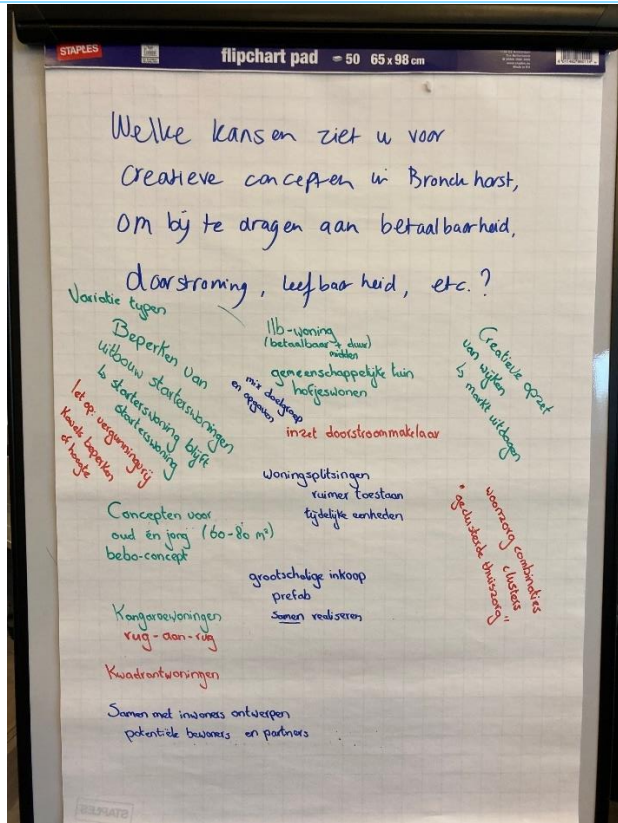 STAPLES
flipchart pad 50 65 x 98 cm
Welke kansen ziet u voor
creatieve concepten in Bronckhorst,
om bij te dragen aan betaalbaarheid,
doorstroming, leefbaarheid, etc.?
Variatie typen
Beperken van
uitbouw starterswoningen
↳ starterswoning blijft
starterswoning
let op: vergunningvrij
Kavels beperken
of hoogte
IIb-woning
(betaalbaar + duur)
midden
gemeenschappelijke tuin
hofjeswonen
mix doelgroep
en opgaven
inzet doorstroommakelaar
Creatieve opzet
van wijken
↳ markt uitdagen
Woningsplitsingen
ruimer toestaan
tijdelijke eenheden
Concepten voor
oud én jong (60-80 m²)
bebo-concept
woonzorg combinaties
clusters
"geclusterde thuiszorg"
grootschalige inkoop
prefab
Samen realiseren
Kangoeroewoningen
rug-aan-rug
Kwadrantwoningen
Samen met inwoners ontwerpen
potentiële bewoners en partners
STAPLES